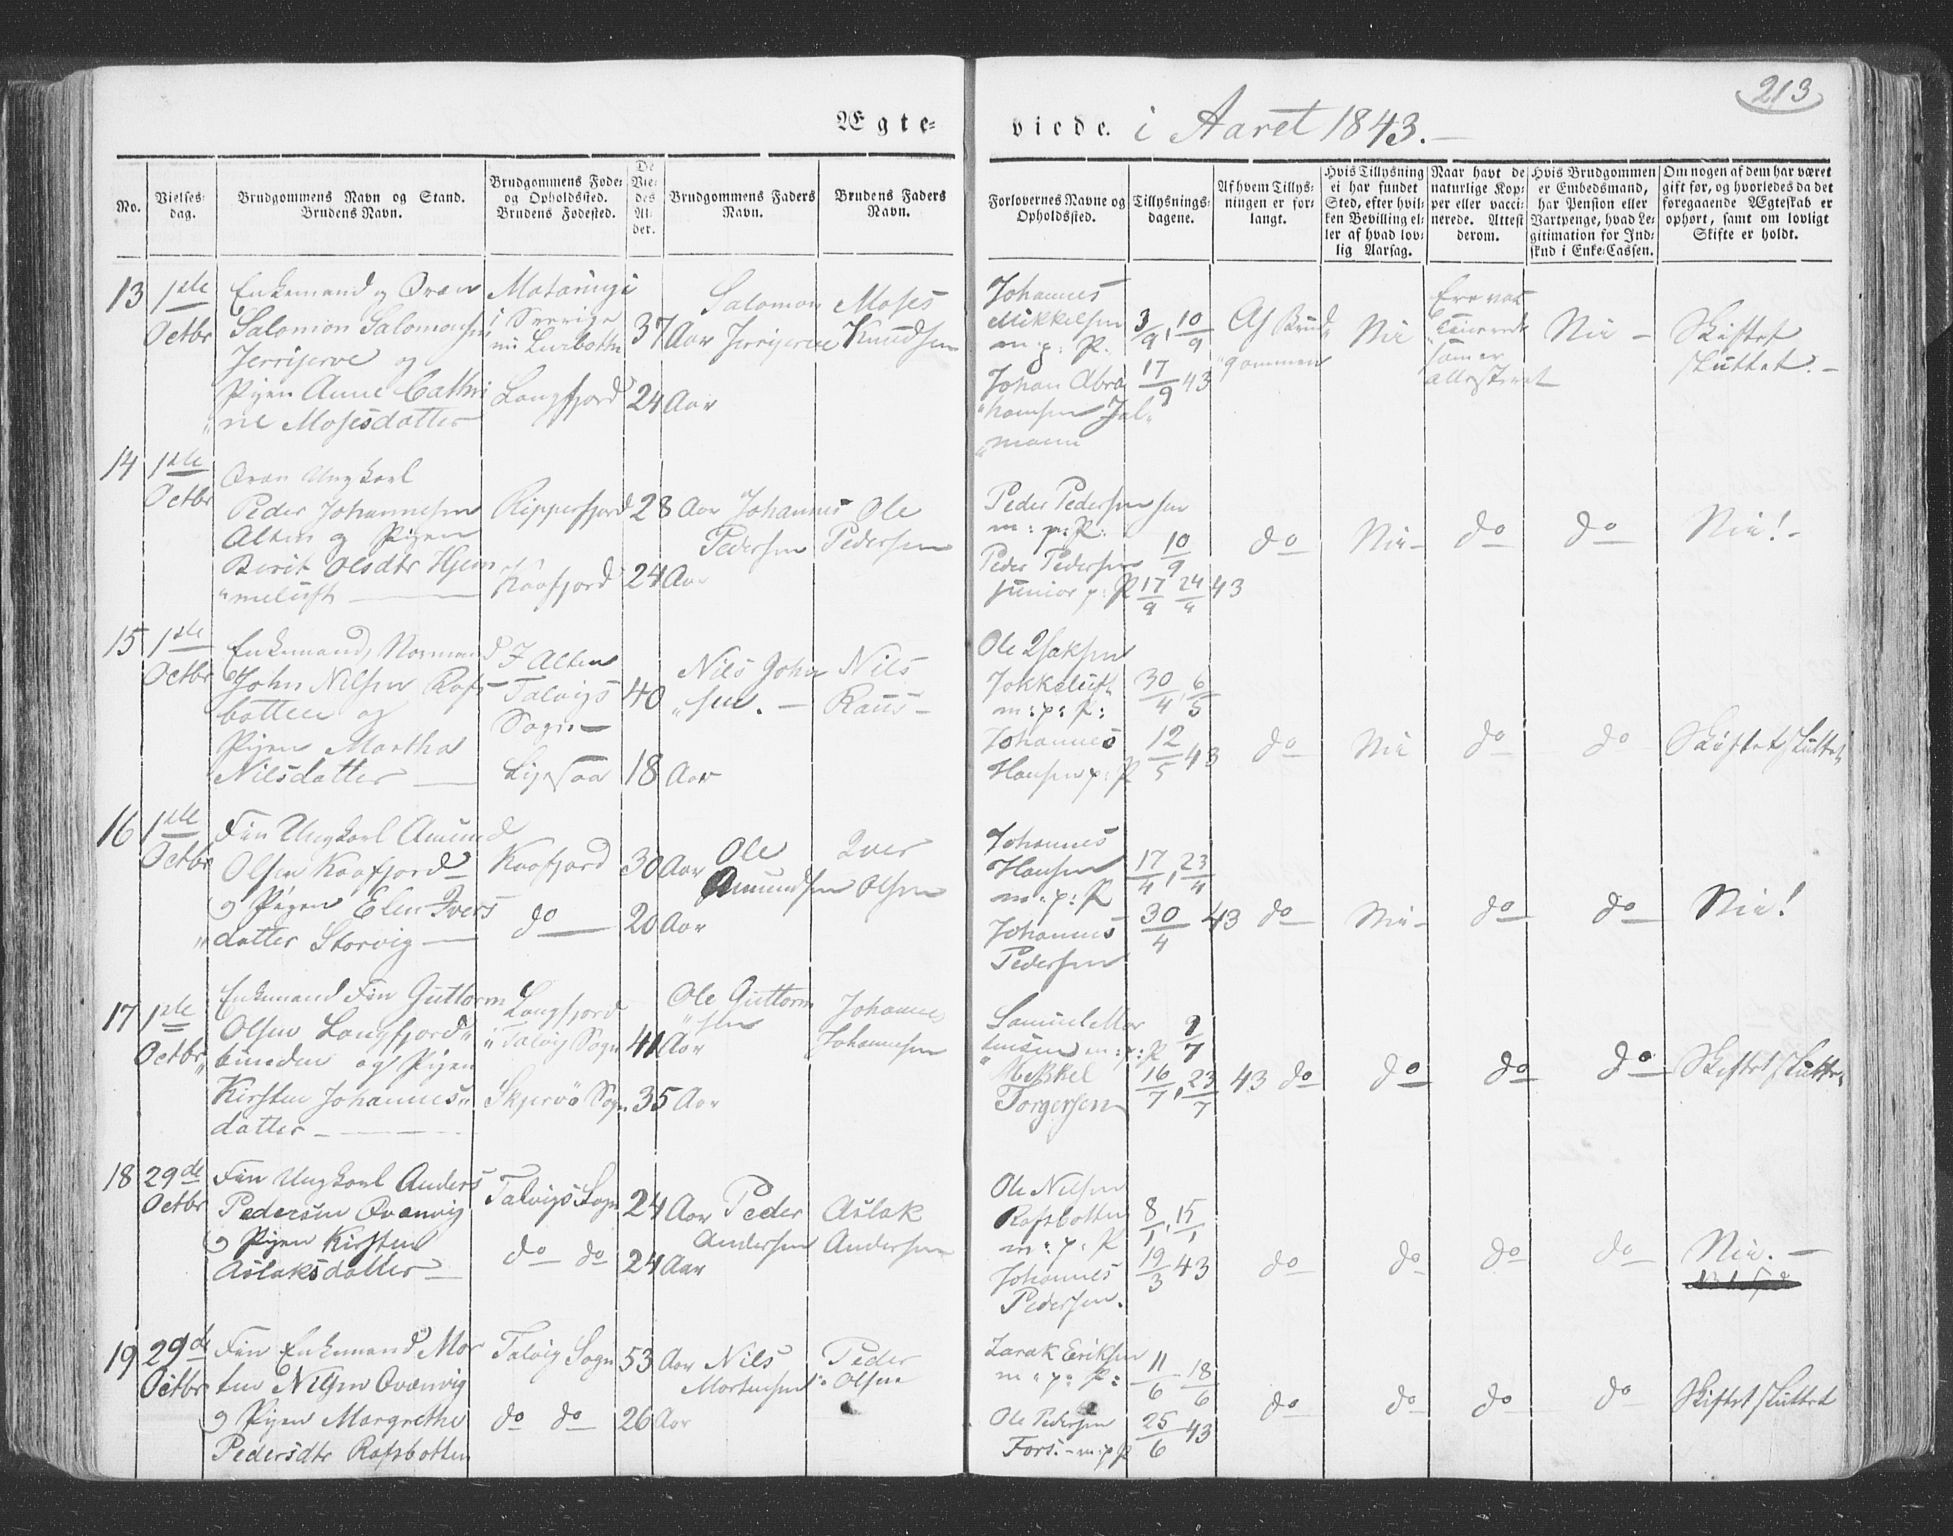 213
Ægte-
viede. i Aaret 1843.
No.
Vielses-
dag.
Brudgommens Navn og Stand.
Brudens Navn.
Brudgommens Føde-
og Opholdssted.
Brudens Fødested.
De
Vie-
des
Al-
der.
Brudgommens Faders
Navn.
Brudens Faders
Navn.
Forlovernes Navne og
Opholdssted.
Tillysnings-
dagene.
Af hvem Tillys-
ningen er for-
langt.
Hvis Tillysning
ei har fundet
Sted, efter hvil-
ken Bevilling el-
ler af hvad lov-
lig Aarsag.
Naar havt de
naturlige Kop-
per eller vacci-
nerede. Attest
derom.
Hvis Brudgommen
er Embedsmand,
har Pension eller
Vartpenge, hvad Le-
gitimation for Ind-
skud i Enke-Cassen.
Om nogen af dem har været
gift før, og hvorledes da det
foregaaende Ægteskab er
ophørt, samt om lovligt
Skifte er holdt.
13 1ste Octbr
Enkemand og Qvæn
Salomon Salomonsen
Jerrijerve og
Pigen Anne Cathri
ne Mosesdatter
i Sverige
Langfjord
37 Aar
24 Aar
Salomon
Jerrijerve
Moses
Knudsen
Johannes
Mikkelsen
m: p: P.
Johan Abra
hamsen Jal-
mann
3/9, 10/9
17/9 43
Af Brud
gommen
Nei
Ere vac
cinerede
som er
attesteret
Nei -
Skiftet
sluttet. -
14 1ste Octbr
Qvæn Ungkarl
Peder Johannesen
Alten og Pigen
Berit Olsdtr Hjem
meluft
Ripperfjord
Kaafjord
28 Aar
24 Aar
Johannes
Pedersen
Ole
Pedersen
Peder Pedersen sen
m: p: P:
Peder Pedersen
junior p: P
10/9
17/9 24/9 43
do
Nei -
do
do
Nei! -
15 1ste Octbr
Enkemand, Normand
John Nilsen Rafs
botten og
Pigen Martha
Nilsdatter
I Alten
Talvigs
Sogn -
40
18 Aar
Nils John
sen. -
Nils
Ole Isaksen
Jokkeluft
m: p: P:
Johannes
Hansen p: P
30/4, 6/5
12/5 43
do
Nei
do
do
Skiftet sluttet
16 1ste Octbr
Fin Ungkarl Amund
Olsen Kaafjord
og Pigen Elen Ivers
datter Storvig
Kaafjord
do
30 Aar
20 Aar
Ole
Amundsen
Iver
Olsen
Johannes
Hansen
m: p: P
Johannes
Pedersen
17/4, 23/4
30/4 43
do
Nei -
do
do
Nei!
17 1ste Octbr
Enkemand Fin Guttorm
Olsen Langfjord
bunden og Pigen
Kirsten Johannes
datter
Langfjord
i Talvig Sogn
Skjervö Sogn
41 Aar
35 Aar
Ole Guttorm
sen
Johannes
Johannesen
Samuel Mor
tensen m: p: P
Mikkel
Torgersen
9/7
16/7, 23/7 43
do
do
do
do
Skiftet sluttet
18 29de Octbr
Fin Ungkarl Anders
Pedersen Qvænvig
og Pigen Kirsten
Aslaksdatter
Talvigs Sogn
do do
24 Aar
24 Aar
Peder
Andersen
Aslak
Andersen
Ole Nilsen
Rafsbotten
m: p: P
Johannes
Pedersen.
8/1, 15/1
19/3 43
do
do
do
do
Nei. -
19 29de Octbr
Fin Enkemand Mor
ten Nilsen Qvænvig
og Pigen Margrethe
Pedersdtr Rafsbotten
Talvig Sogn
do do
53 Aar
26 Aar
Nils
Mortensen
Peder
Olsen
Zarak Eriksen
m: p: P:
Ole Pedersen
Fors. - m: p P
11/6 18/6
25/6 43
do
do
do
do
Skiftet sluttet